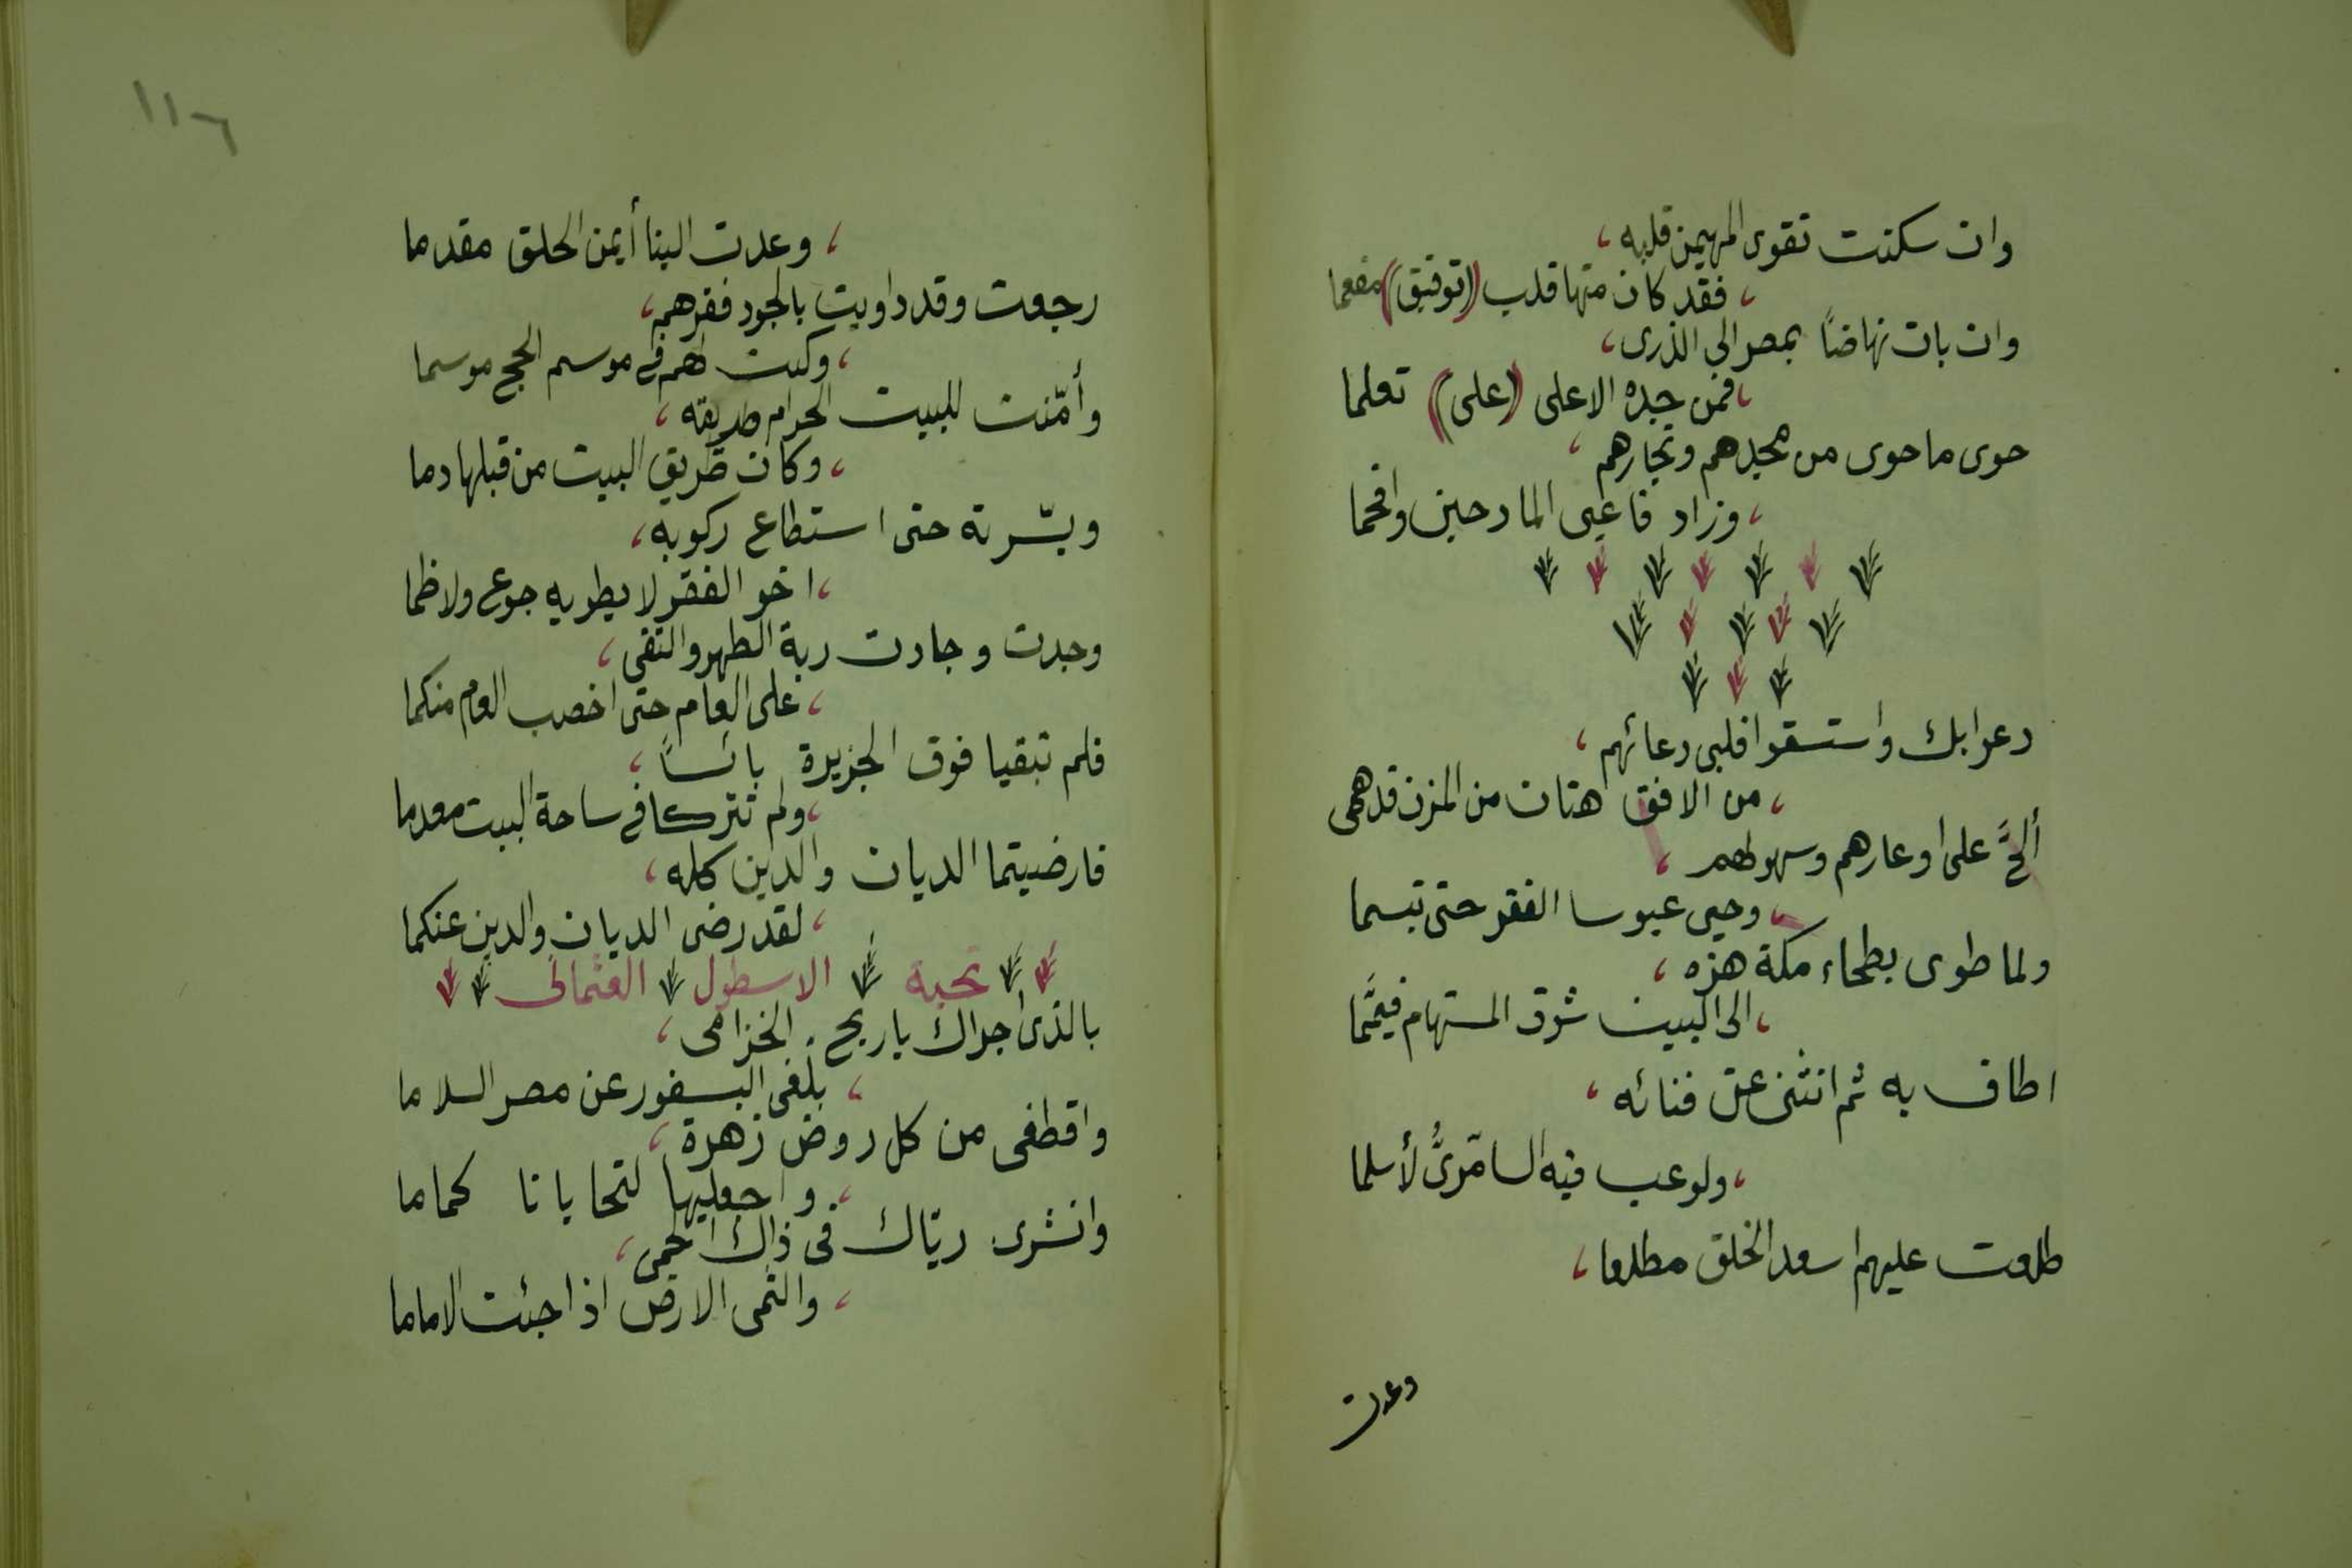 وان سكنت تقوى المهيمن قلبه ،
، فقد كان منها قلب (توفيق) مفعما
وان بات نهاضاً بمصر الى الذرى ،
، فمن جده الاعلى (على) تعلما
حوى ما حوى من مجدهم ونجارهم ،
، وزاد فاعيى المادحين وافحما
دعوا بك واستسقوا فلبى دعائهم ،
، من الافق هتان من المزن قد همى
ألحَّ على اوعارهم وسهولهم ،
، وحيى عبوسا الفقر حتى تبسما
ولما طوى بطحاء مكة هزه ،
، الى البيت شوق المستهام فيمَّما
اطاف به ثم انثنى عن فنائه ،
، ولو عب فيه السامَرىُّ لأسلما
طلعت عليهم اسعد الخلق مطلعا ،
وعدت
١١٦
، وعدت الينا أيمن الخلق مقدما
رجعت وقد داويت بالجود فقرهم ،
، وكنت لهم فى موسم الحج موسما
وأمّنت للبيت الحرام طريقه ،
، وكان طريق البيت من قبلها دما
ويسّرته حتى استطاع ركوبه ،
، اخو الفقر لا يطويه جوع ولا ظما
وجدت وجادت ربة الطهر والتقى ،
، على العام حتى اخصب العام منكما
فلم تبقيا فوق الجزيرة بائساً ،
، ولم تتركا فى ساحة البيت معدما
فارضيتما الديان والدين كله ،
، لقد رضى الديان والدين عنكما
تحية الاسطول العثمانى
بالذى اجراك يا ريح الخزامى ،
، بلغى البسفور عن مصر السلاما
واقطفى من كل روض زهرة ،
، واجعليها لتحايانا كماما
وانشرى ريّاك فى ذاك الحمى ،
، والثمى الارض اذا جئت الاماما